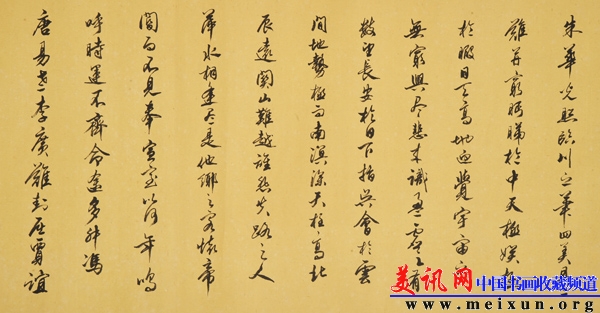 朱華光照臨川之筆四美具二
難并窮眄睇於中天極娛游
於暇日天高地迥覺宇宙之
無窮興盡悲來識盈虛之有
數望長安於日下指吳會於雲
間地勢極而南溟深天柱高北
辰遠關山難越誰悲失路之人
萍水相逢盡是他鄉之客懷帝
閽而不見奉宣室以何年嗚
呼時運不齊命途多舛馮
唐易老李廣難封屈賈誼
美讯网 中国书画收藏频道
www.meixun.org